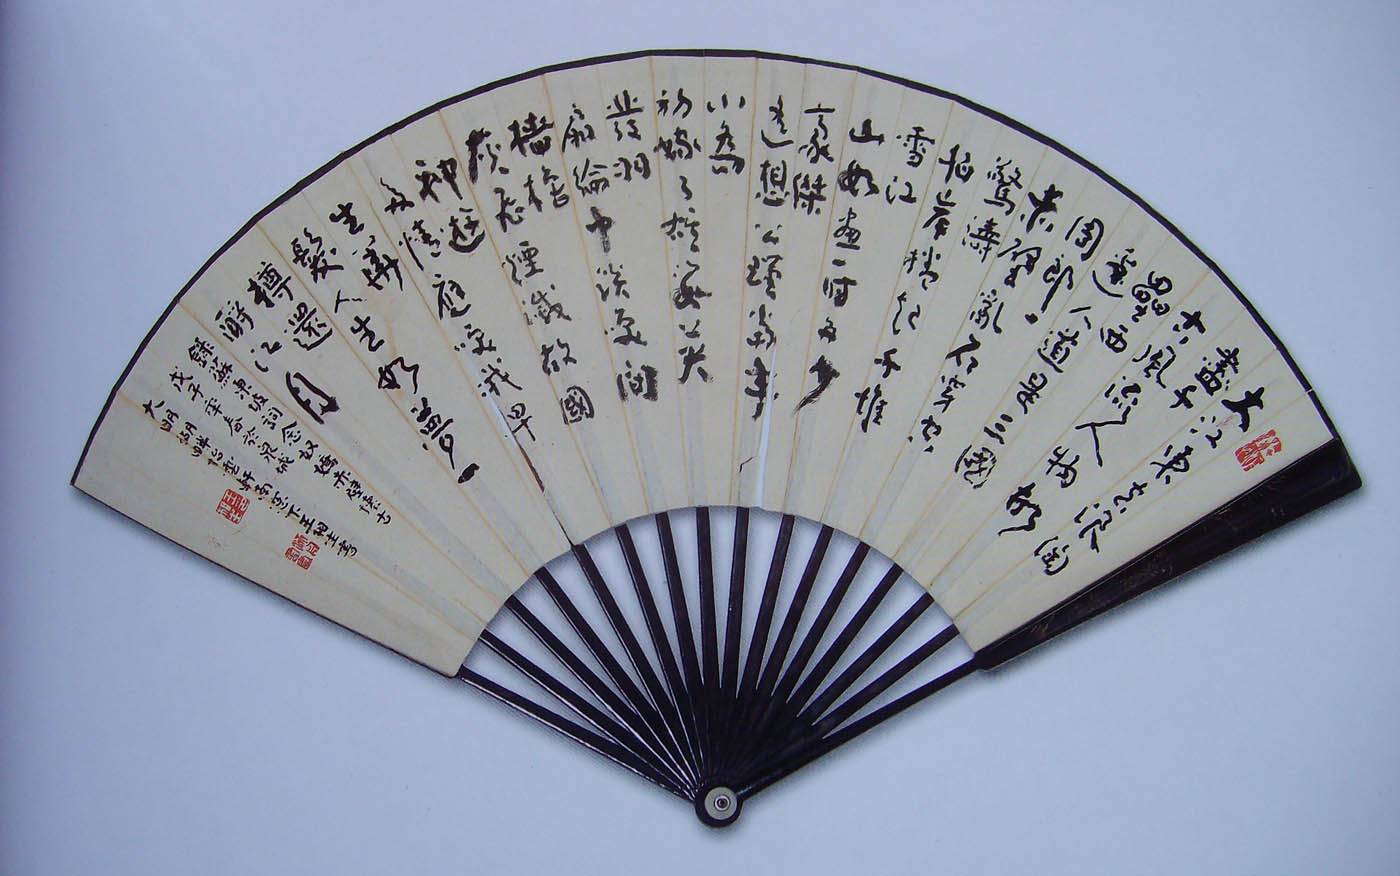 大江東去浪淘
盡千
古風流人物故
壘西
邊人道是三國
周郎
赤壁亂石穿空
驚濤
拍岸捲起千堆
雪江
山如畫一時多少
豪傑
遙想公瑾當年
小喬
初嫁了雄姿英
發羽
扇綸巾談笑間
檣櫓
灰飛煙滅故國
神遊
多情應笑我早
生華
髮人生如夢
樽還
酹江月
錄蘇東坡詞念奴嬌赤壁懷古
戊子年春於泉城
大明湖畔軒南窗下王